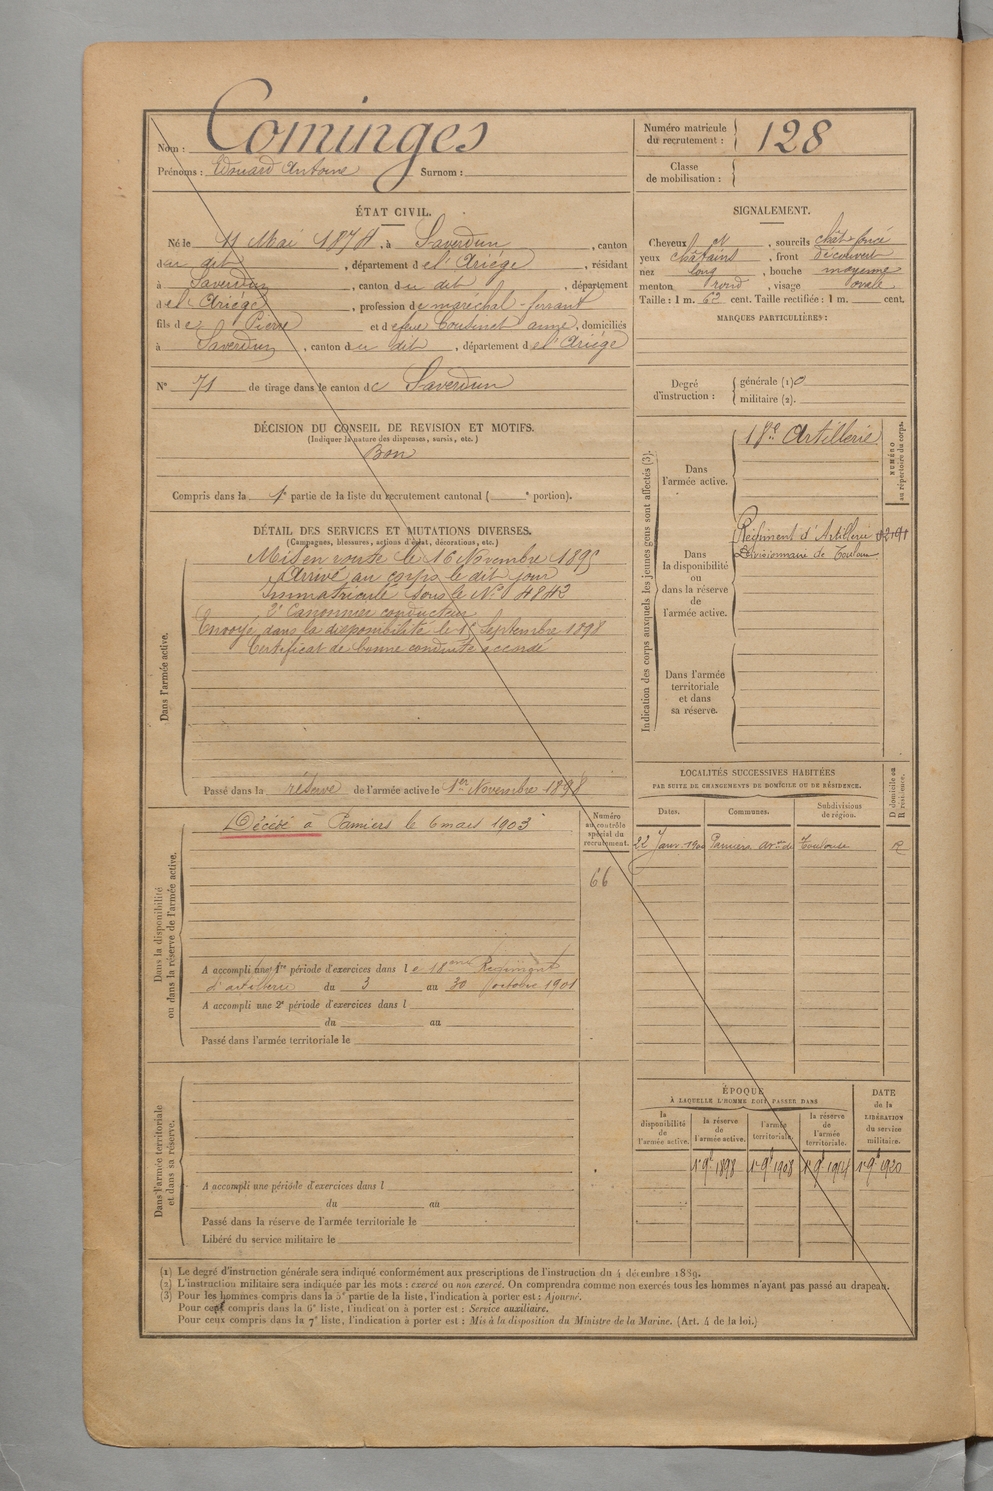 Nom : Cominges
Prénoms : Edouard Antoine Surnom :
Numéro matricule du recrutement : 128
Classe de mobilisation :
ÉTAT CIVIL.
Né le 11 Mai 1874, à Saverdun, canton
du dit, département de l'Ariège, résidant
à Saverdun, canton du dit, département
de l'Ariége, profession de maréchal-ferrant
fils de Pierre et de Coutinet anne, domiciliés
à Saverdun, canton du dit, département de l'Ariége
N° 71 de tirage dans le canton de Saverdun
SIGNALEMENT.
Cheveux N, sourcils chât
yeux châtains, front découvert
nez long, bouche moyenne
menton rond, visage ovale
Taille : 1 m. 62 cent. Taille rectifiée : 1 m. cent.
MARQUES PARTICULIÈRES :
Degré d'instruction : générale (1) 0
militaire (2).
DÉCISION DU CONSEIL DE REVISION ET MOTIFS.
(Indiquer la nature des dispenses, sursis, etc.)
Bon
Compris dans la 1e partie de la liste du recrutement cantonal ( e portion).
DÉTAIL DES SERVICES ET MUTATIONS DIVERSES.
(Campagnes, blessures, actions d'éclat, décorations, etc.)
Dans l'armée active.
Mis en route le 16 Novembre 1895
Arrivé au corps le dit jour
Immatriculé sous le N° 4842
2e Canonnier conducteur
Envoyé dans la disponibilité le 18 Septembre 1898
Certificat de bonne conduite accordé
Passé dans la réserve de l'armée active le 1er Novembre 1898
Indication des corps auxquels les jeunes gens sont affectés (3).
NUMÉRO au répertoire du corps.
Dans l'armée active.
18e Artillerie
Dans la disponibilité ou dans la réserve de l'armée active.
Régiment d'Artillerie
Divisionnaire de Toulouse
Dans l'armée territoriale et dans sa réserve.
Dans la disponibilité ou dans la réserve de l'armée active.
Décédé à Pamiers le 6 mars 1903
Numéro au contrôle spécial du recrutement.
66
A accompli une 1re période d'exercices dans le 18eme Régiment
d'artillerie du 3 au 30 octobre 1901
A accompli une 2e période d'exercices dans l
du au
Passé dans l'armée territoriale le
LOCALITÉS SUCCESSIVES HABITÉES
PAR SUITE DE CHANGEMENTS DE DOMICILE OU DE RÉSIDENCE.
D domicile ou R résidence.
Dates. Communes. Subdivisions de région.
22 Janv. 1900 Pamiers Toulouse R
Dans l'armée territoriale et dans sa réserve.
A accompli une période d'exercices dans l
du au
Passé dans la réserve de l'armée territoriale le
Libéré du service militaire le
ÉPOQUE
À LAQUELLE L'HOMME DOIT PASSER DANS
la disponibilité de l'armée active.
la réserve de l'armée active.
l'armée territoriale.
la réserve de l'armée territoriale.
DATE de la LIBÉRATION du service militaire.
1er 9e 1898 1er 9e 1908 1er 9e 1914 1er 9e 1920
(1) Le degré d'instruction générale sera indiqué conformément aux prescriptions de l'instruction du 4 décembre 1889.
(2) L'instruction militaire sera indiquée par les mots : exercé ou non exercé. On comprendra comme non exercés tous les hommes n'ayant pas passé au drapeau.
(3) Pour les hommes compris dans la 5e partie de la liste, l'indication à porter est : Ajourné.
Pour ceux compris dans la 6e liste, l'indication à porter est : Service auxiliaire.
Pour ceux compris dans la 7e liste, l'indication à porter est : Mis à la disposition du Ministre de la Marine. (Art. 4 de la loi.)